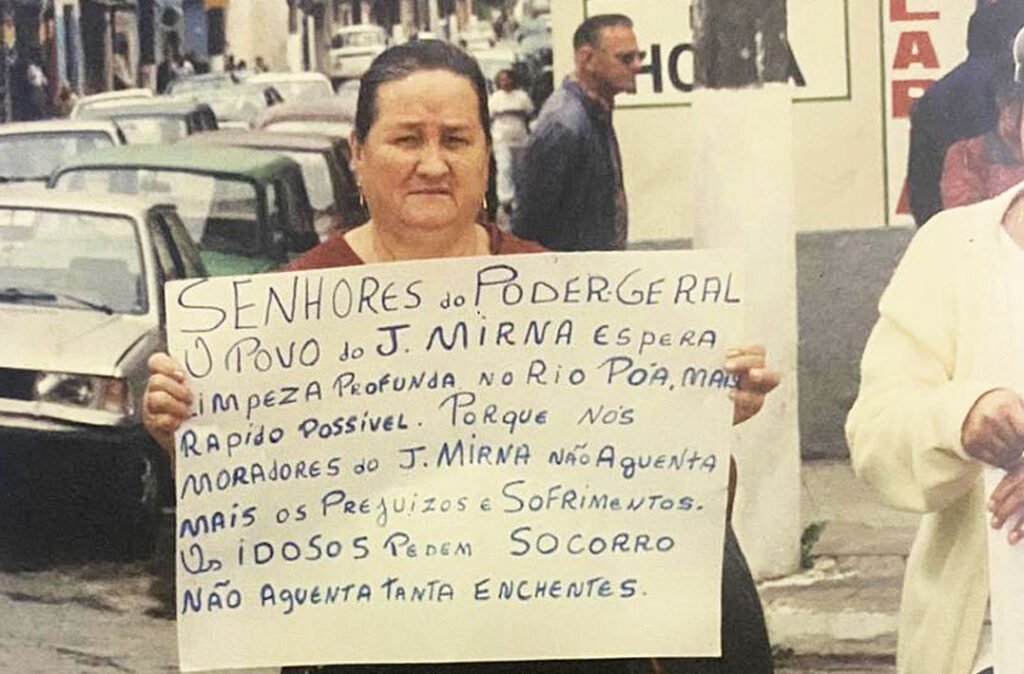 SENHORES do PODER-GERAL
O POVO do J. MIRNA ESPERA
LIMPEZA PROFUNDA NO RIO POÁ, MAIS
RAPIDO POSSÍVEL. PORQUE NOS
MORADORES do J. MIRNA NÃO AGUENTA
MAIS OS PREJUIZOS E SOFRIMENTOS.
Os IDOSOS PEDEM SOCORRO
NÃO AGUENTA TANTA ENCHENTES.